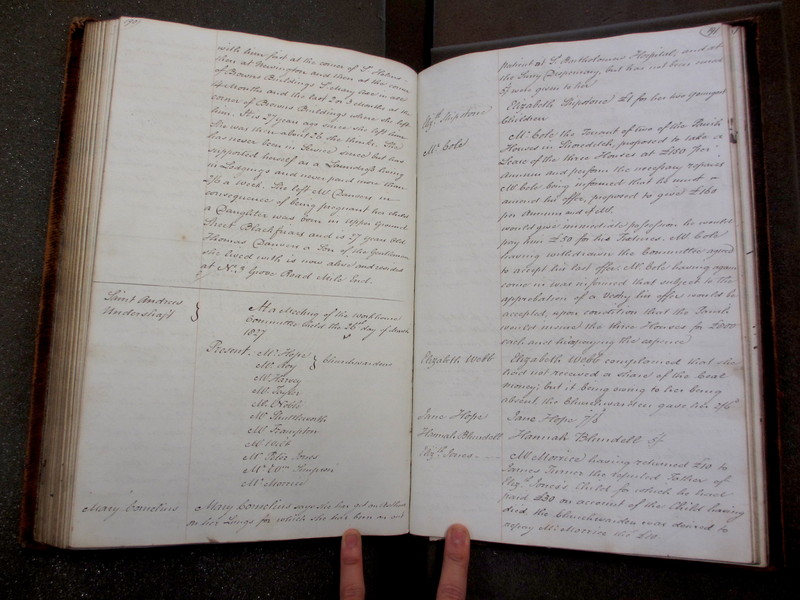 190
with him first at the corner of St Helens
then at Newington and then at the corner
of Browns Buildings St Mary Axe in all
14 Months and the last 2 or 3 Months at the
corner of Browns Buildings where she left
him. It is 27 years ago since she left him
She was then about 26 she thinks. She
has never been in Service since but has
supported herself as a Laundress living
in Lodgings and never paid more than
2/6 a week. She left Mr Danvers in
consequence of being pregnant her child
a Daughter was born in Upper Ground
Street Blackfriars and is 27 years old
Thomas Danvers a Son of the Gentleman
she lived with is now alive and resides
at No. 3 Grove Road Mile End.
Saint Andrew
Undershaft
At a Meeting of the workhouse
Committee held the 26th day of March
1827
Present Mr Hope
Mr Roy
Churchwardens
Mr Harvey
Mr Taylor
Mr Noble
Mr Shuttleworth
Mr Frampton
Mr Peter Jones
Mr Wm Simpson
Mr Morrice
Mary Cornelius
Mary Cornelius says she has got an Asthma
on her Lungs for which she has been an out
191
patient at St Bartholomews Hospital, and at
the Dispensary, but has not been cured
5/ were given to her
Elizth Shipstone
Elizabeth Shipstone £1 for her two youngest
Children
Mr Cole
Mr Cole the Tenant of two of the Parish
Houses in Shoreditch, proposed to take a
Lease of the three Houses at £150 per
Annum and perform the necessary repairs
Mr Cole being informed that he must
amend his offer, proposed to give £160
per Annum and if Mr
would give immediate possession he would
pay him £50 for his Fixtures. Mr Cole
having withdrawn the Committee agreed
to accept his last offer Mr Cole having again
come in was informed that subject to the
approbation of a Vestry his offer would be
accepted, upon condition that the Parish
could insure the three Houses for
each and his paying the expense
Elizabeth Webb
Elizabeth Webb complained that she
had not received a share of the Coal
money; but it being owing to her being
about the Churchwarden gave her 2/6
Jane Hope
Jane Hope 7/
Hannah Blundell
Hannah Blundell 5/
Elizth Jones
Mr Morrice having returned £10 to
James Turner the reputed Father of
Elizth Jones's Child for which he had
paid £30 on account of the Child having
died the Churchwarden was desired to
repay Mr Morrice the £10